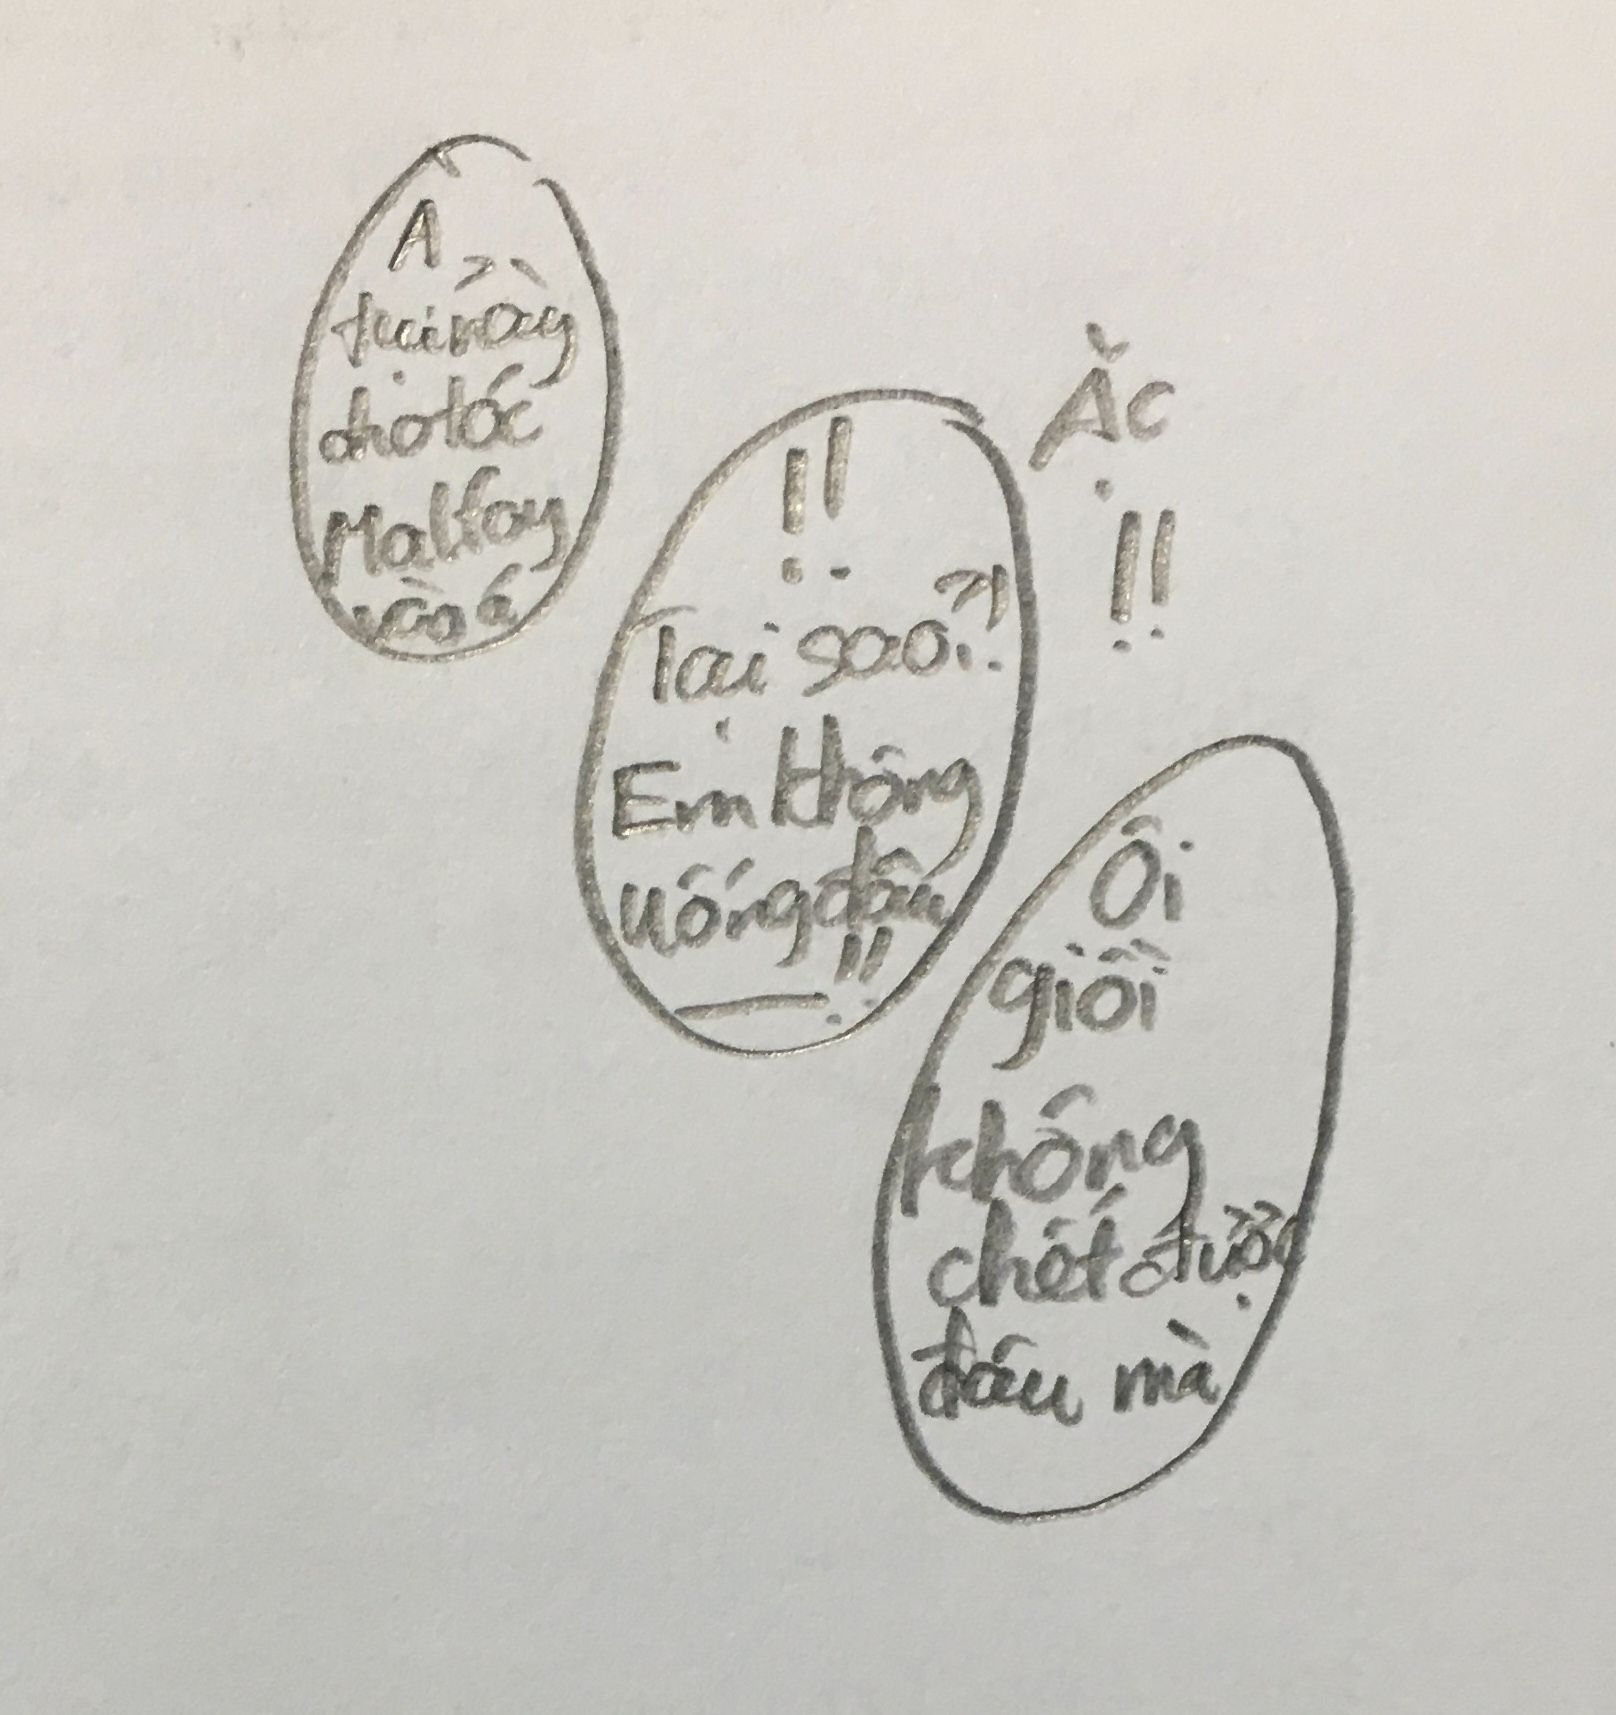 A
tụi nãy
cho tóc
Malfoy
vào á
!!
Tại sao?!
Em không
uống đâu
—!!
Ặc
!!
Ôi
giồi
không
chết được
đâu mà